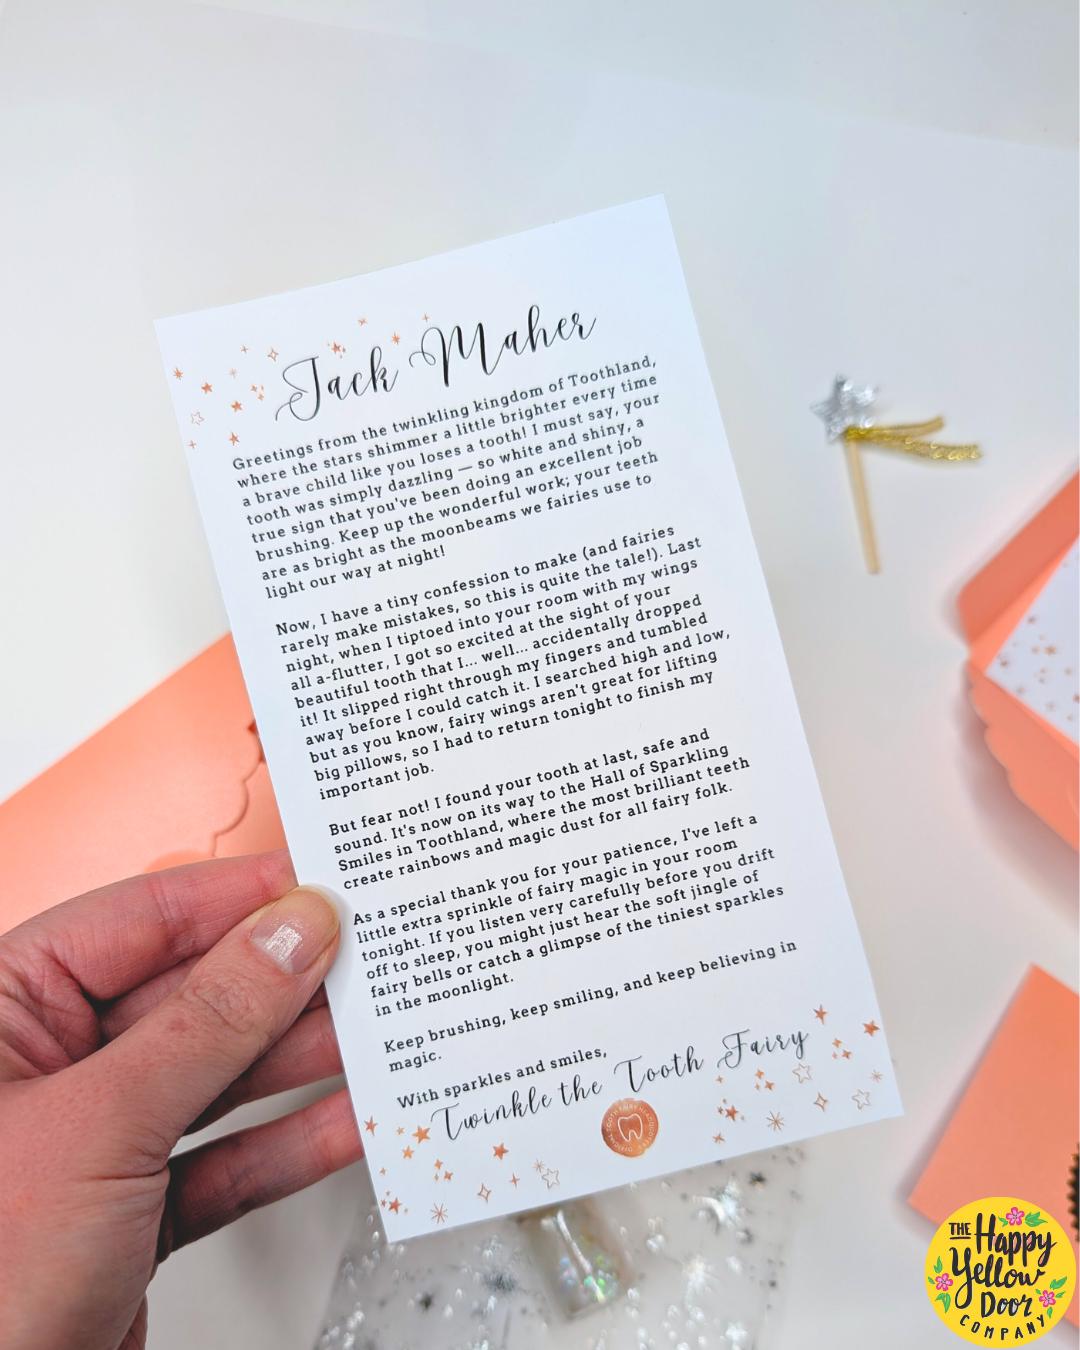 Jack Maher
Greetings from the twinkling kingdom of Toothland,
where the stars shimmer a little brighter every time
a brave child like you loses a tooth! I must say, your
tooth was simply dazzling — so white and shiny, a
true sign that you've been doing an excellent job
brushing. Keep up the wonderful work; your teeth
are as bright as the moonbeams we fairies use to
light our way at night!
Now, I have a tiny confession to make (and fairies
rarely make mistakes, so this is quite the tale!). Last
night, when I tiptoed into your room with my wings
all a-flutter, I got so excited at the sight of your
beautiful tooth that I... well... accidentally dropped
it! It slipped right through my fingers and tumbled
away before I could catch it. I searched high and low,
but as you know, fairy wings aren't great for lifting
big pillows, so I had to return tonight to finish my
important job.
But fear not! I found your tooth at last, safe and
sound. It's now on its way to the Hall of Sparkling
Smiles in Toothland, where the most brilliant teeth
create rainbows and magic dust for all fairy folk.
As a special thank you for your patience, I've left a
little extra sprinkle of fairy magic in your room
tonight. If you listen very carefully before you drift
off to sleep, you might just hear the soft jingle of
fairy bells or catch a glimpse of the tiniest sparkles
in the moonlight.
Keep brushing, keep smiling, and keep believing in
magic.
With sparkles and smiles,
Twinkle the Tooth Fairy
OFFICIAL TOOTH FAIRY HEADQUARTERS
THE
Happy
Yellow
Door
COMPANY